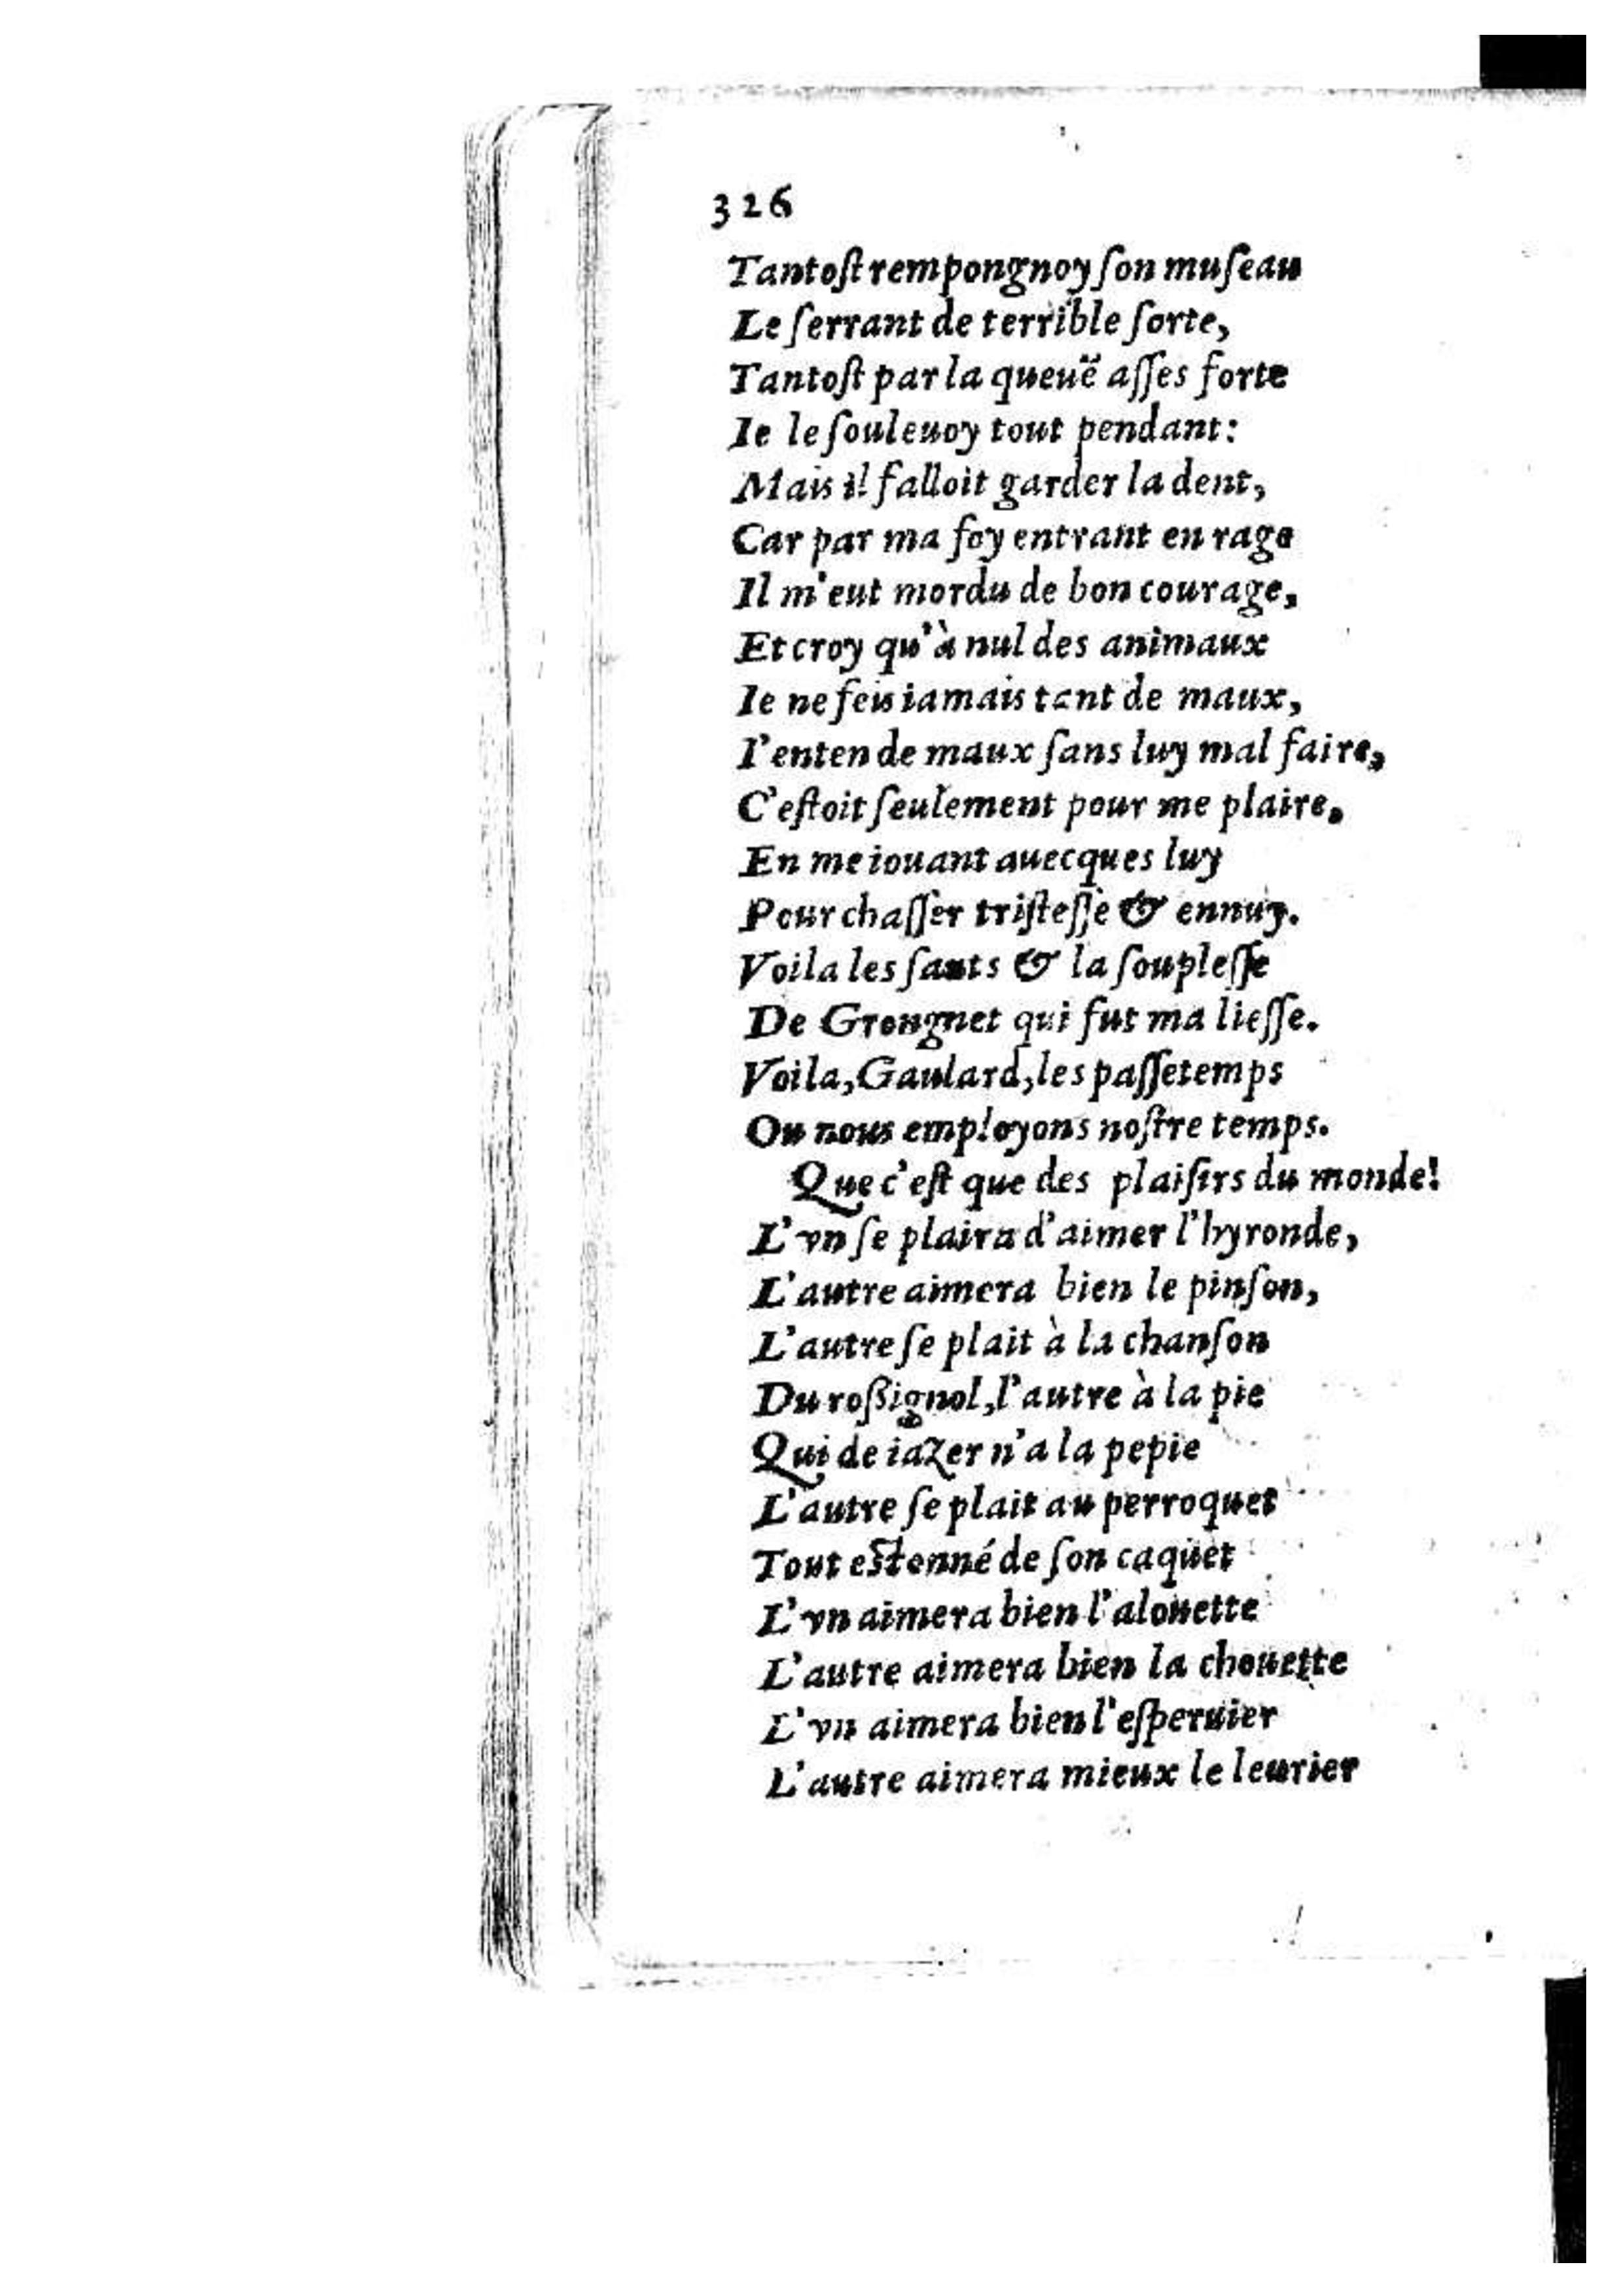 326
Tantoſt rempongnoy ſon muſeau
Le ſerrant de terrible ſorte,
Tantoſt par la queuë aſſes forte
Ie le ſouleuoy tout pendant:
Mais il falloit garder la dent,
Car par ma foy entrant en rage
Il m'eut mordu de bon courage,
Et croy qu'à nul des animaux
Ie ne feis iamais tant de maux,
I'enten de maux ſans luy mal faire,
C'eſtoit ſeulement pour me plaire,
En me iouant auecques luy
Pour chaſſer triſteſſe & ennuy.
Voila les ſauts & la ſoupleſſe
De Grongnet qui fut ma lieſſe.
Voila, Gaulard, les paſſetemps
Ou nous employons noſtre temps.
Que c'eſt que des plaiſirs du monde!
L'vn ſe plaira d'aimer l'hyronde,
L'autre aimera bien le pinſon,
L'autre ſe plait à la chanſon
Du roßignol, l'autre à la pie
Qui de iazer n'a la pepie
L'autre ſe plait au perroquet
Tout eſtonné de ſon caquet
L'vn aimera bien l'alouette
L'autre aimera bien la chouette
L'vn aimera bien l'eſperuier
L'autre aimera mieux le leurier